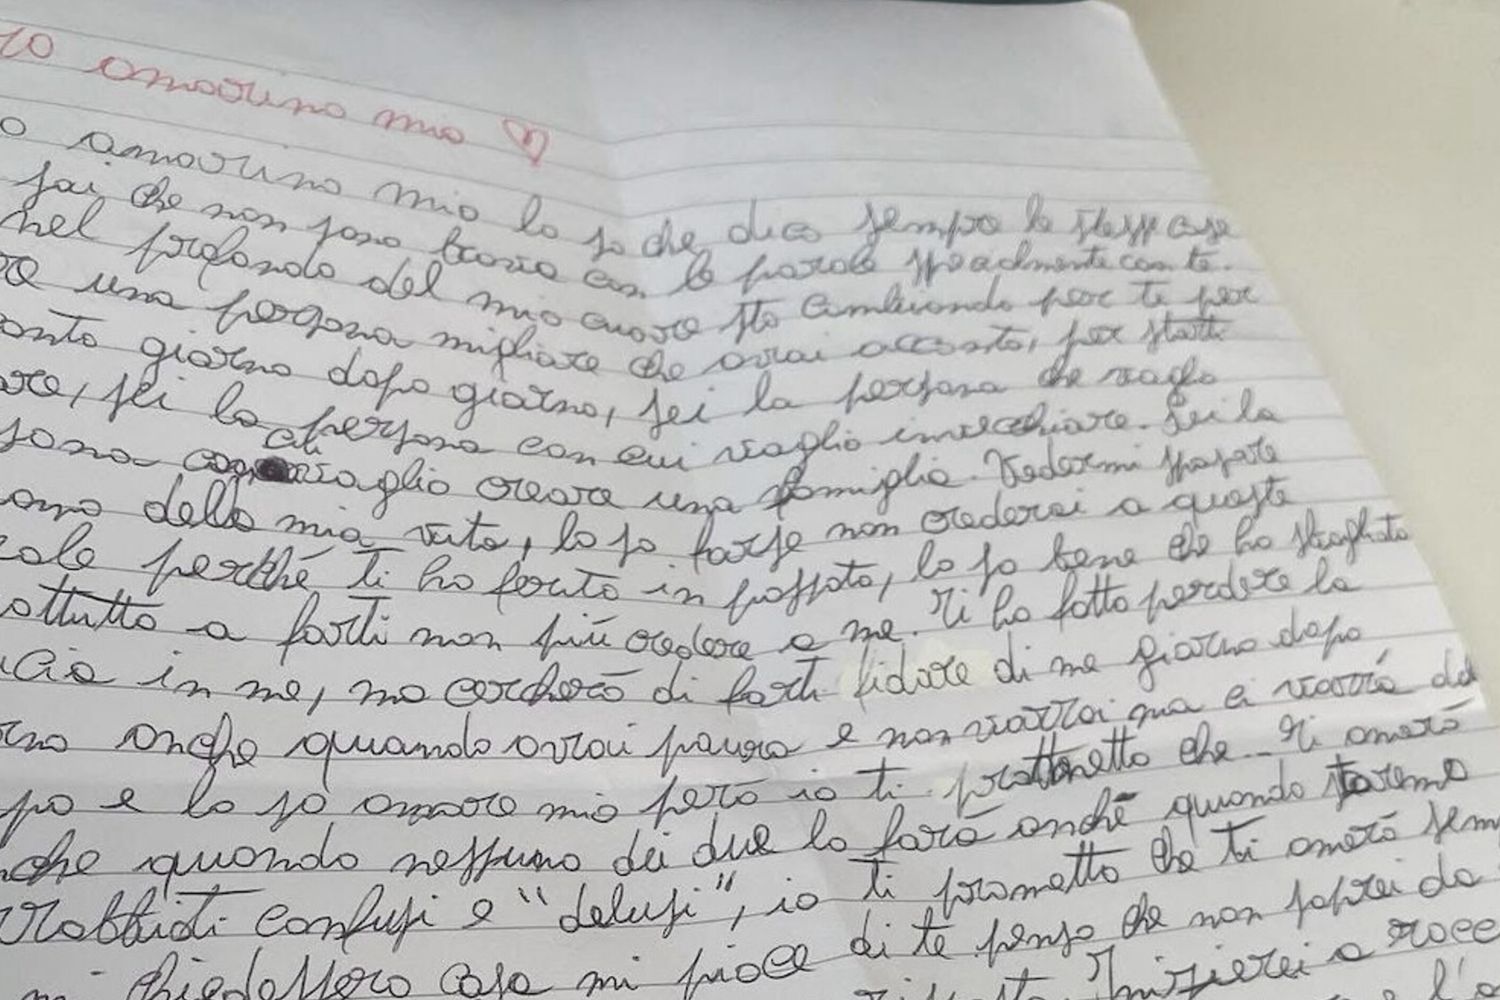 amorino mio ♡
o amorino mio lo so che dico sempre le stesse cose
sai che non sono bravo con le parole specialmente con te.
nel profondo del mio cuore sto cambiando per te per
una persona migliore che avrai accanto, per starti
giorno dopo giorno, sei la persona che voglio
sei la persona con cui voglio invecchiare. Sei la
con cui voglio creare una famiglia. Vedermi sposare
della mia vita, lo so forse non crederai a queste
perché ti ho ferito in passato, lo so bene che ho sbagliato
a farti non più credere a me. Ti ho fatto perdere la
in me, ma cercherò di farti fidare di me giorno dopo
anche quando avrai paura e non vorrai ma ci vorrà del
po e lo so amore mio però io ti prometto che... Ti amerò
che quando nessuno dei due lo farà anche quando staremo
confusi e "delusi", io ti prometto che ti amerò sem
mi chiedessero cosa mi piace di te penso che non saprei da
Inizierei a